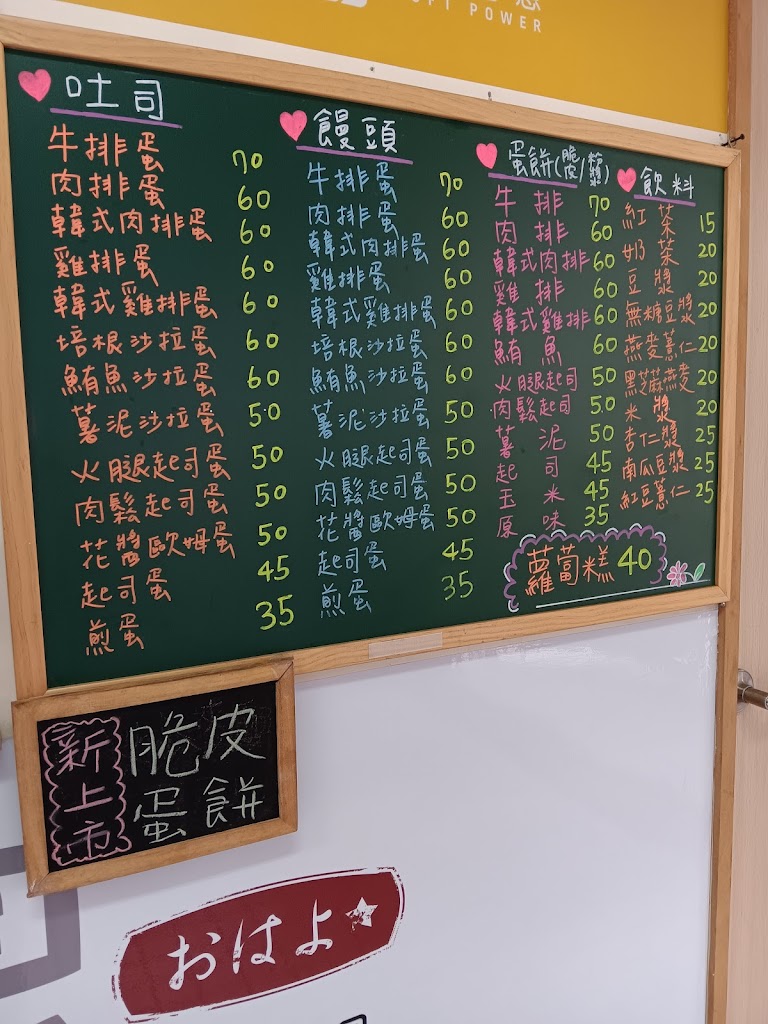 POWER
吐司
牛排蛋 70
肉排蛋 60
韓式肉排蛋 60
雞排蛋 60
韓式雞排蛋 60
培根沙拉蛋 60
鮪魚沙拉蛋 60
薯泥沙拉蛋 50
火腿起司蛋 50
肉鬆起司蛋 50
花醬歐姆蛋 50
起司蛋 45
煎蛋 35
饅頭
牛排蛋 70
肉排蛋 60
韓式肉排蛋 60
雞排蛋 60
韓式雞排蛋 60
培根沙拉蛋 60
鮪魚沙拉蛋 60
薯泥沙拉蛋 50
火腿起司蛋 50
肉鬆起司蛋 50
花醬歐姆蛋 50
起司蛋 45
煎蛋 35
蛋餅(脆皮/軟漿)
牛排 70
肉排 60
韓式肉排 60
雞排 60
韓式雞排 60
鮪魚 60
火腿起司 50
肉鬆起司 50
薯泥 50
起司 45
玉米 45
原味 35
蘿蔔糕 40
飲料
紅茶 15
奶茶 20
豆漿 20
無糖豆漿 20
燕麥薏仁 20
黑芝麻燕麥 20
米漿 20
杏仁漿 25
南瓜豆漿 25
紅豆薏仁 25
新上市
脆皮
蛋餅
おはよ